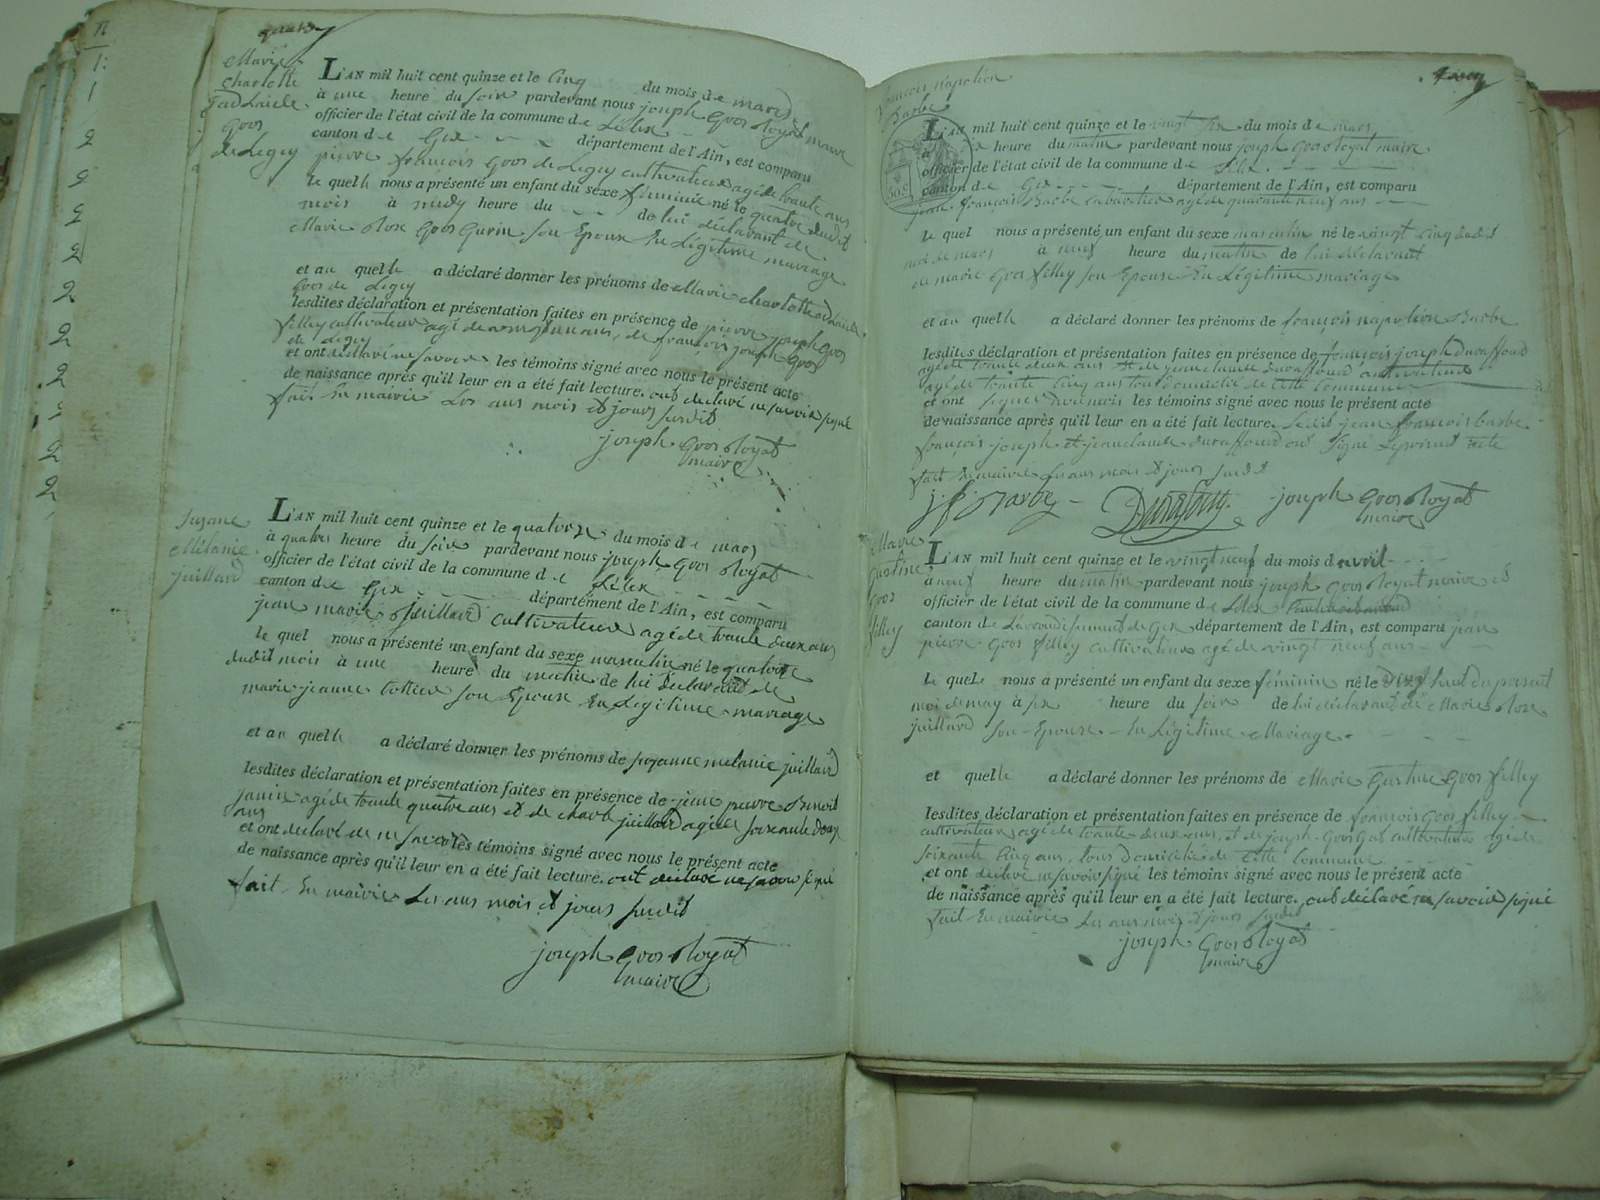 Marie
charlotte
adelaide
Gros
de Legey
L'AN mil huit cent quinze et le Cinq du mois de mars
à une heure du soir pardevant nous joseph Gros Royat maire
officier de l'état civil de la commune de Lelex
canton de Gex département de l'Ain, est comparu
pierre françois Gros de Legey cultivateur agé de trante ans
le quel nous a présenté un enfant du sexe féminin né le quatre dudit
mois à midy heure du de lui déclarant de
Marie Rose Gros Gurin son Epouse En Légitime mariage
et au quel a déclaré donner les prénoms de Marie charlotte adelaide
Gros de Legey
lesdites déclaration et présentation faites en présence de pierre joseph Gros
filley cultivateur agé de ans, de françois joseph Gros
de Legey
et ont declaré ne savoir les témoins signé avec nous le présent acte
de naissance après qu'il leur en a été fait lecture. ont déclaré ne savoir signé
fait En mairie Les ans mois et jours susdit
joseph Gros Royat
maire
Suzane
Mélanie
juillard
L'AN mil huit cent quinze et le quatorze du mois de mars
à quatres heure du soir pardevant nous joseph Gros Royat
officier de l'état civil de la commune de Lelex
canton de Gex département de l'Ain, est comparu
jean marie juillard cultivateur agé de trante deux ans
le quel nous a présenté un enfant du sexe masculin né le quatorze
dudit mois à une heure du matin de lui déclarant de
marie jeanne son Epouse En Légitime mariage
et au quel a déclaré donner les prénoms de suzanne mélanie juillard
lesdites déclaration et présentation faites en présence de jean pierre Benoit
janin agé de trante quatre ans et de charle juillard agé de soixante douze
ans
et ont déclaré de ne savoir les témoins signé avec nous le présent acte
de naissance après qu'il leur en a été fait lecture. ont déclaré ne savoir signé
fait En mairie Les ans mois et jours susdit
joseph Gros Royat
maire
françois napoléon
Barbe
L'AN mil huit cent quinze et le vingt six du mois de mars
à heure du matin pardevant nous joseph Gros Royat maire
officier de l'état civil de la commune de Lelex
canton de Gex département de l'Ain, est comparu
jean françois Barbe Cabaretier agé de quarante neuf ans
le quel nous a présenté un enfant du sexe masculin né le vingt cinq dudit
moi de mars à neuf heure du matin de lui déclarant
de marie Gros filley son Epouse En Légitime mariage
et au quel a déclaré donner les prénoms de françois napoléon Barbe
lesdites déclaration et présentation faites en présence de françois joseph Duraffourd
agé de trante deux ans et de jean claude Duraffourd
agé de trante Cinq ans tous domicilié de cette Commune
et ont les témoins signé avec nous le présent acte
de naissance après qu'il leur en a été fait lecture. Ledit jean françois barbe
françois joseph et jean claude duraffourd ont signé le présent acte
fait En mairie Les ans mois et jours susdit
j f Barbe Duraffourg joseph Gros Royat
maire
Marie
Gustine
Gros
filley
L'AN mil huit cent quinze et le vingt neuf du mois d avril
à neuf heure du matin pardevant nous joseph Gros Royat maire et
officier de l'état civil de la commune de Lelex
canton de L'arrondissement de Gex département de l'Ain, est comparu jean
pierre Gros filley cultivateur agé de vingt neuf ans
le quel nous a présenté un enfant du sexe féminin né le Dix huit du présent
moi de may à six heure du soir de lui déclarant de Marie Rose
juillard Son Epouse En Légitime Mariage
et quelle a déclaré donner les prénoms de Marie Gustine Gros filley
lesdites déclaration et présentation faites en présence de françois Gros filley
cultivateur agé de trante deux ans, et de joseph Gros Gas cultivateur agé de
soixante Cinq ans, tous domicilié de cette Commune
et ont déclaré ne savoir signé les témoins signé avec nous le présent acte
de naissance après qu'il leur en a été fait lecture. ont déclaré ne savoir signé
fait En mairie Les ans mois et jours susdit
joseph Gros Royat
maire